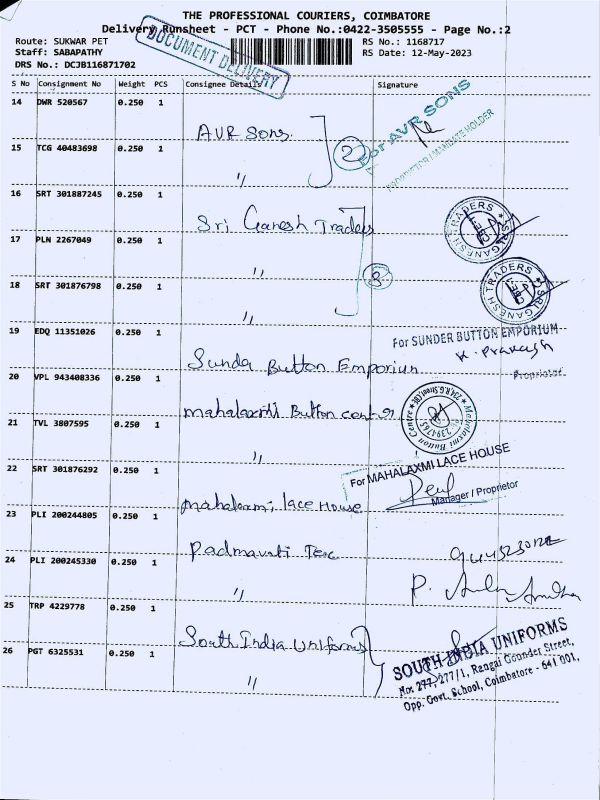 THE PROFESSIONAL COURIERS, COIMBATORE
Delivery Runsheet - PCT - Phone No.:0422-3505555 - Page No.:2
DOCUMENT DELIVERY
Route: SUKWAR PET
RS No.: 1168717
Staff: SABAPATHY
RS Date: 12-May-2023
DRS No.: DCJB116871702
S No Consignment No Weight PCS Consignee Details Signature
14 DWR 520567 0.250 1
AVR Sons.
For AVR SONS
PROPRIETOR / MANDATE HOLDER
2
15 TCG 40483698 0.250 1
"
16 SRT 301887245 0.250 1
Sri Ganesh Traders
SRI GANESH TRADERS
CBE
17 PLN 2267049 0.250 1
"
3
SRI GANESH TRADERS
CBE
18 SRT 301876798 0.250 1
"
19 EDQ 11351026 0.250 1
For SUNDER BUTTON EMPORIUM
K. Prakash
Proprietor
Sunda Button Emporium
20 VPL 943408336 0.250 1
mahalaxmi Button center
Mahalaxmi Button Centre
21 TVL 3807595 0.250 1
"
22 SRT 301876292 0.250 1
For MAHALAXMI LACE HOUSE
Manager / Proprietor
mahalaxmi lace House
23 PLI 200244805 0.250 1
Padmavati Tex
24 PLI 200245330 0.250 1
"
25 TRP 4229778 0.250 1
South India Uniforms
SOUTH INDIA UNIFORMS
No: 277, 277/1, Rangai Gounder Street,
Opp. Govt. School, Coimbatore - 641 001.
26 PGT 6325531 0.250 1
"